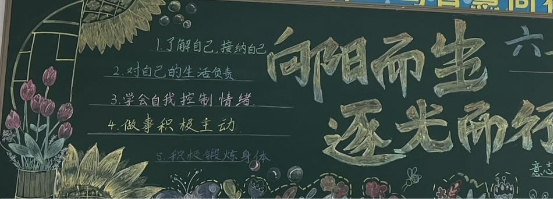 1.了解自己,接纳自己
2.对自己的生活负责
3.学会自我控制情绪
4.做事积极主动
5.积极锻炼身体
向阳而生
逐光而行
六
意志